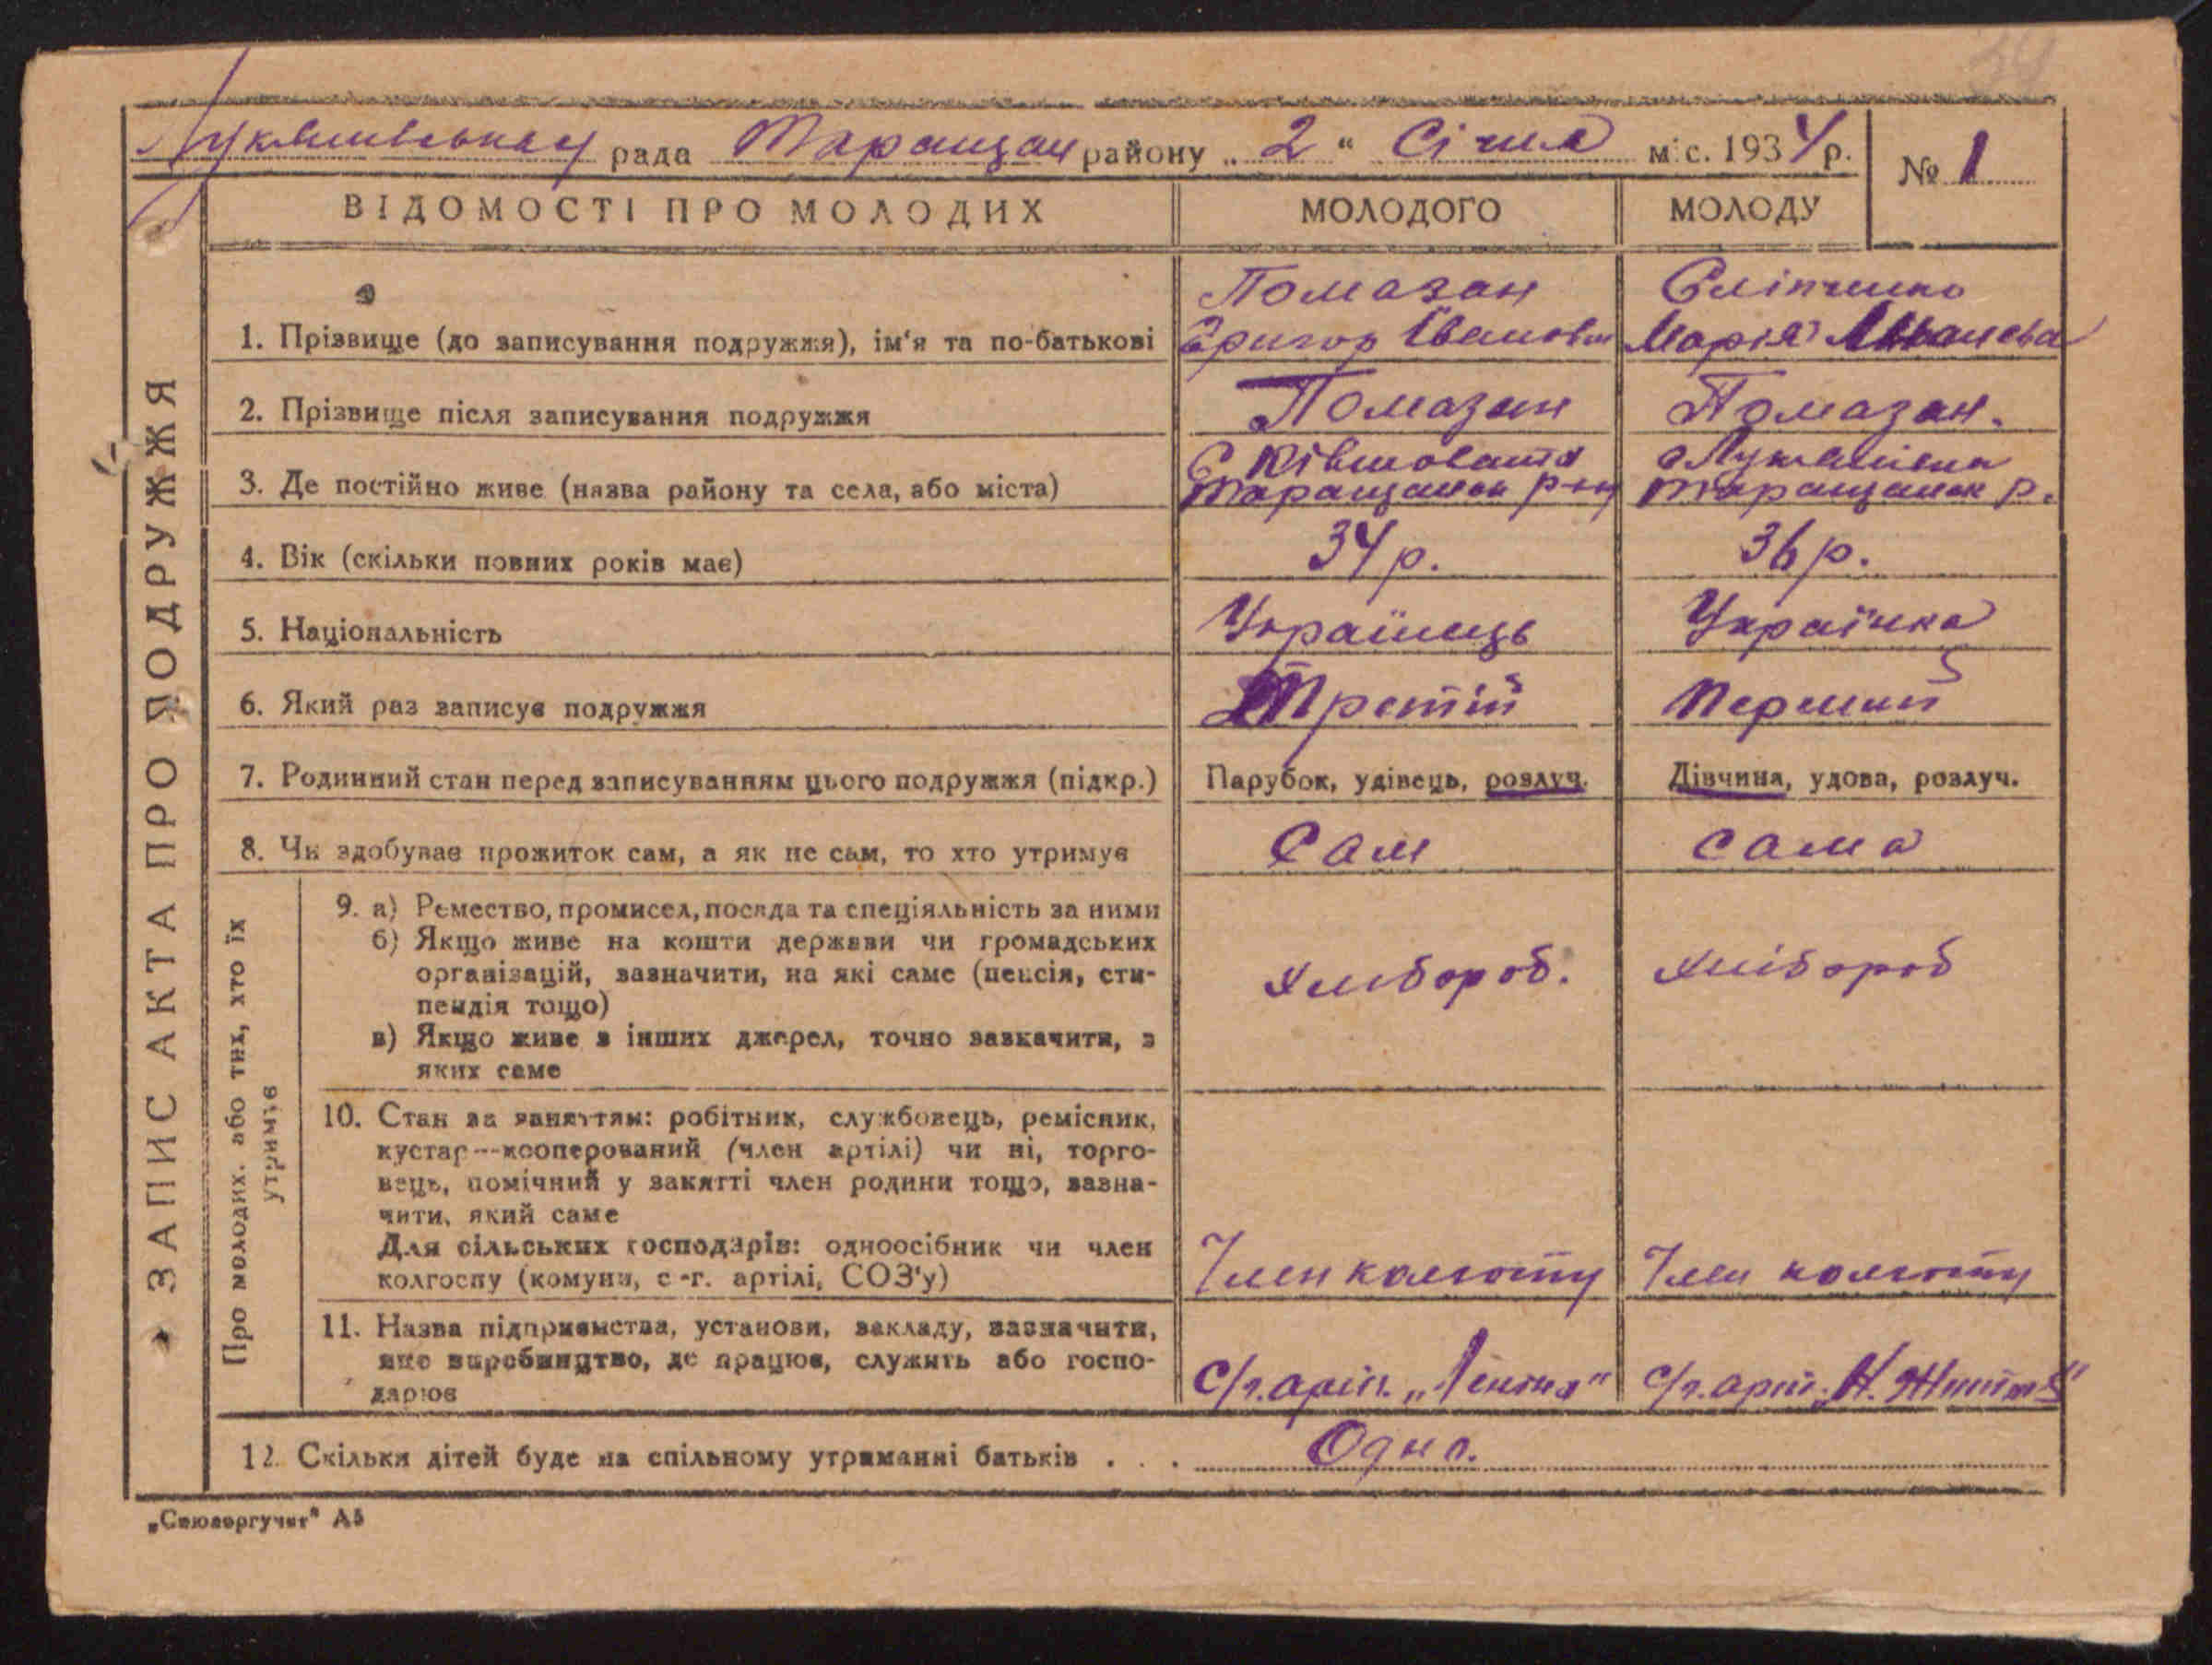 Лукашівська рада Таращан району „2“ Січня міс. 1934 р.
№ 1
ВІДОМОСТІ ПРО МОЛОДИХ
МОЛОДОГО
МОЛОДУ
ЗАПИС АКТА ПРО ПОДРУЖЖЯ
1. Прізвище (до записування подружжя), ім'я та по-батькові
Помазан
Григор Іванови
Сліпченко
Марія
2. Прізвище після записування подружжя
Помазан
Помазан.
3. Де постійно живе (назва району та села, або міста)
С Ківшовата
Таращанск р-ну
с Лукашівка
Таращанск р.
4. Вік (скільки повних років має)
34 р.
36 р.
5. Національність
Українець
Українка
6. Який раз записує подружжя
Третій
Перший
7. Родинний стан перед записуванням цього подружжя (підкр.)
Парубок, удівець, розлуч.
Дівчина, удова, розлуч.
8. Чи здобуває прожиток сам, а як не сам, то хто утримує
Сам
сама
Про молодих або тих, хто їх
утримує
9. а) Ремество, промисел, посада та спеціяльність за ними
б) Якщо живе на кошти держави чи громадських
організацій, зазначити, на які саме (пенсія, сти-
пендія тощо)
в) Якщо живе з інших джерел, точно зазначити, з
яких саме
Хлібороб.
Хлібороб
10. Стан за заняттям: робітник, службовець, ремісник,
кустар—кооперований (член артілі) чи ні, торго-
вець, помічний у занятті член родини тощо, зазна-
чити, який саме
Для сільських господарів: одноосібник чи член
колгоспу (комуни, с.-г. артілі, СОЗ'у)
Член колгоспу
Член колгоспу
11. Назва підприємства, установи, закладу, зазначити,
яке виробництво, де працює, служить або госпо-
дарює
С/г. арт. „Леніна“
с/г. арт. „Н. Життя“
12. Скільки дітей буде на спільному утриманні батьків . . .
Одно.
„Союзоргучет“ А5